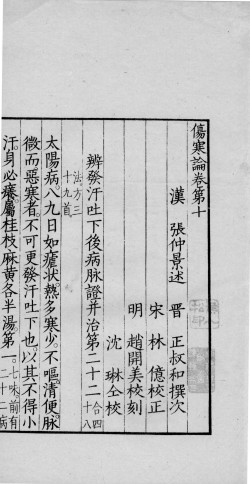 傷寒論卷第十
漢 張仲景述 晋 王叔和撰次
宋 林 億校正
明 趙開美校刻
沈 琳仝校
辨發汗吐下後病脉證并治第二十二 合四十八
法方三十九首
太陽病八九日如瘧狀熱多寒少不嘔清便脉
微而惡寒者不可更發汗吐下也以其不得小
汗身必癢屬桂枝麻黃各半湯第一 七味前有二十二病